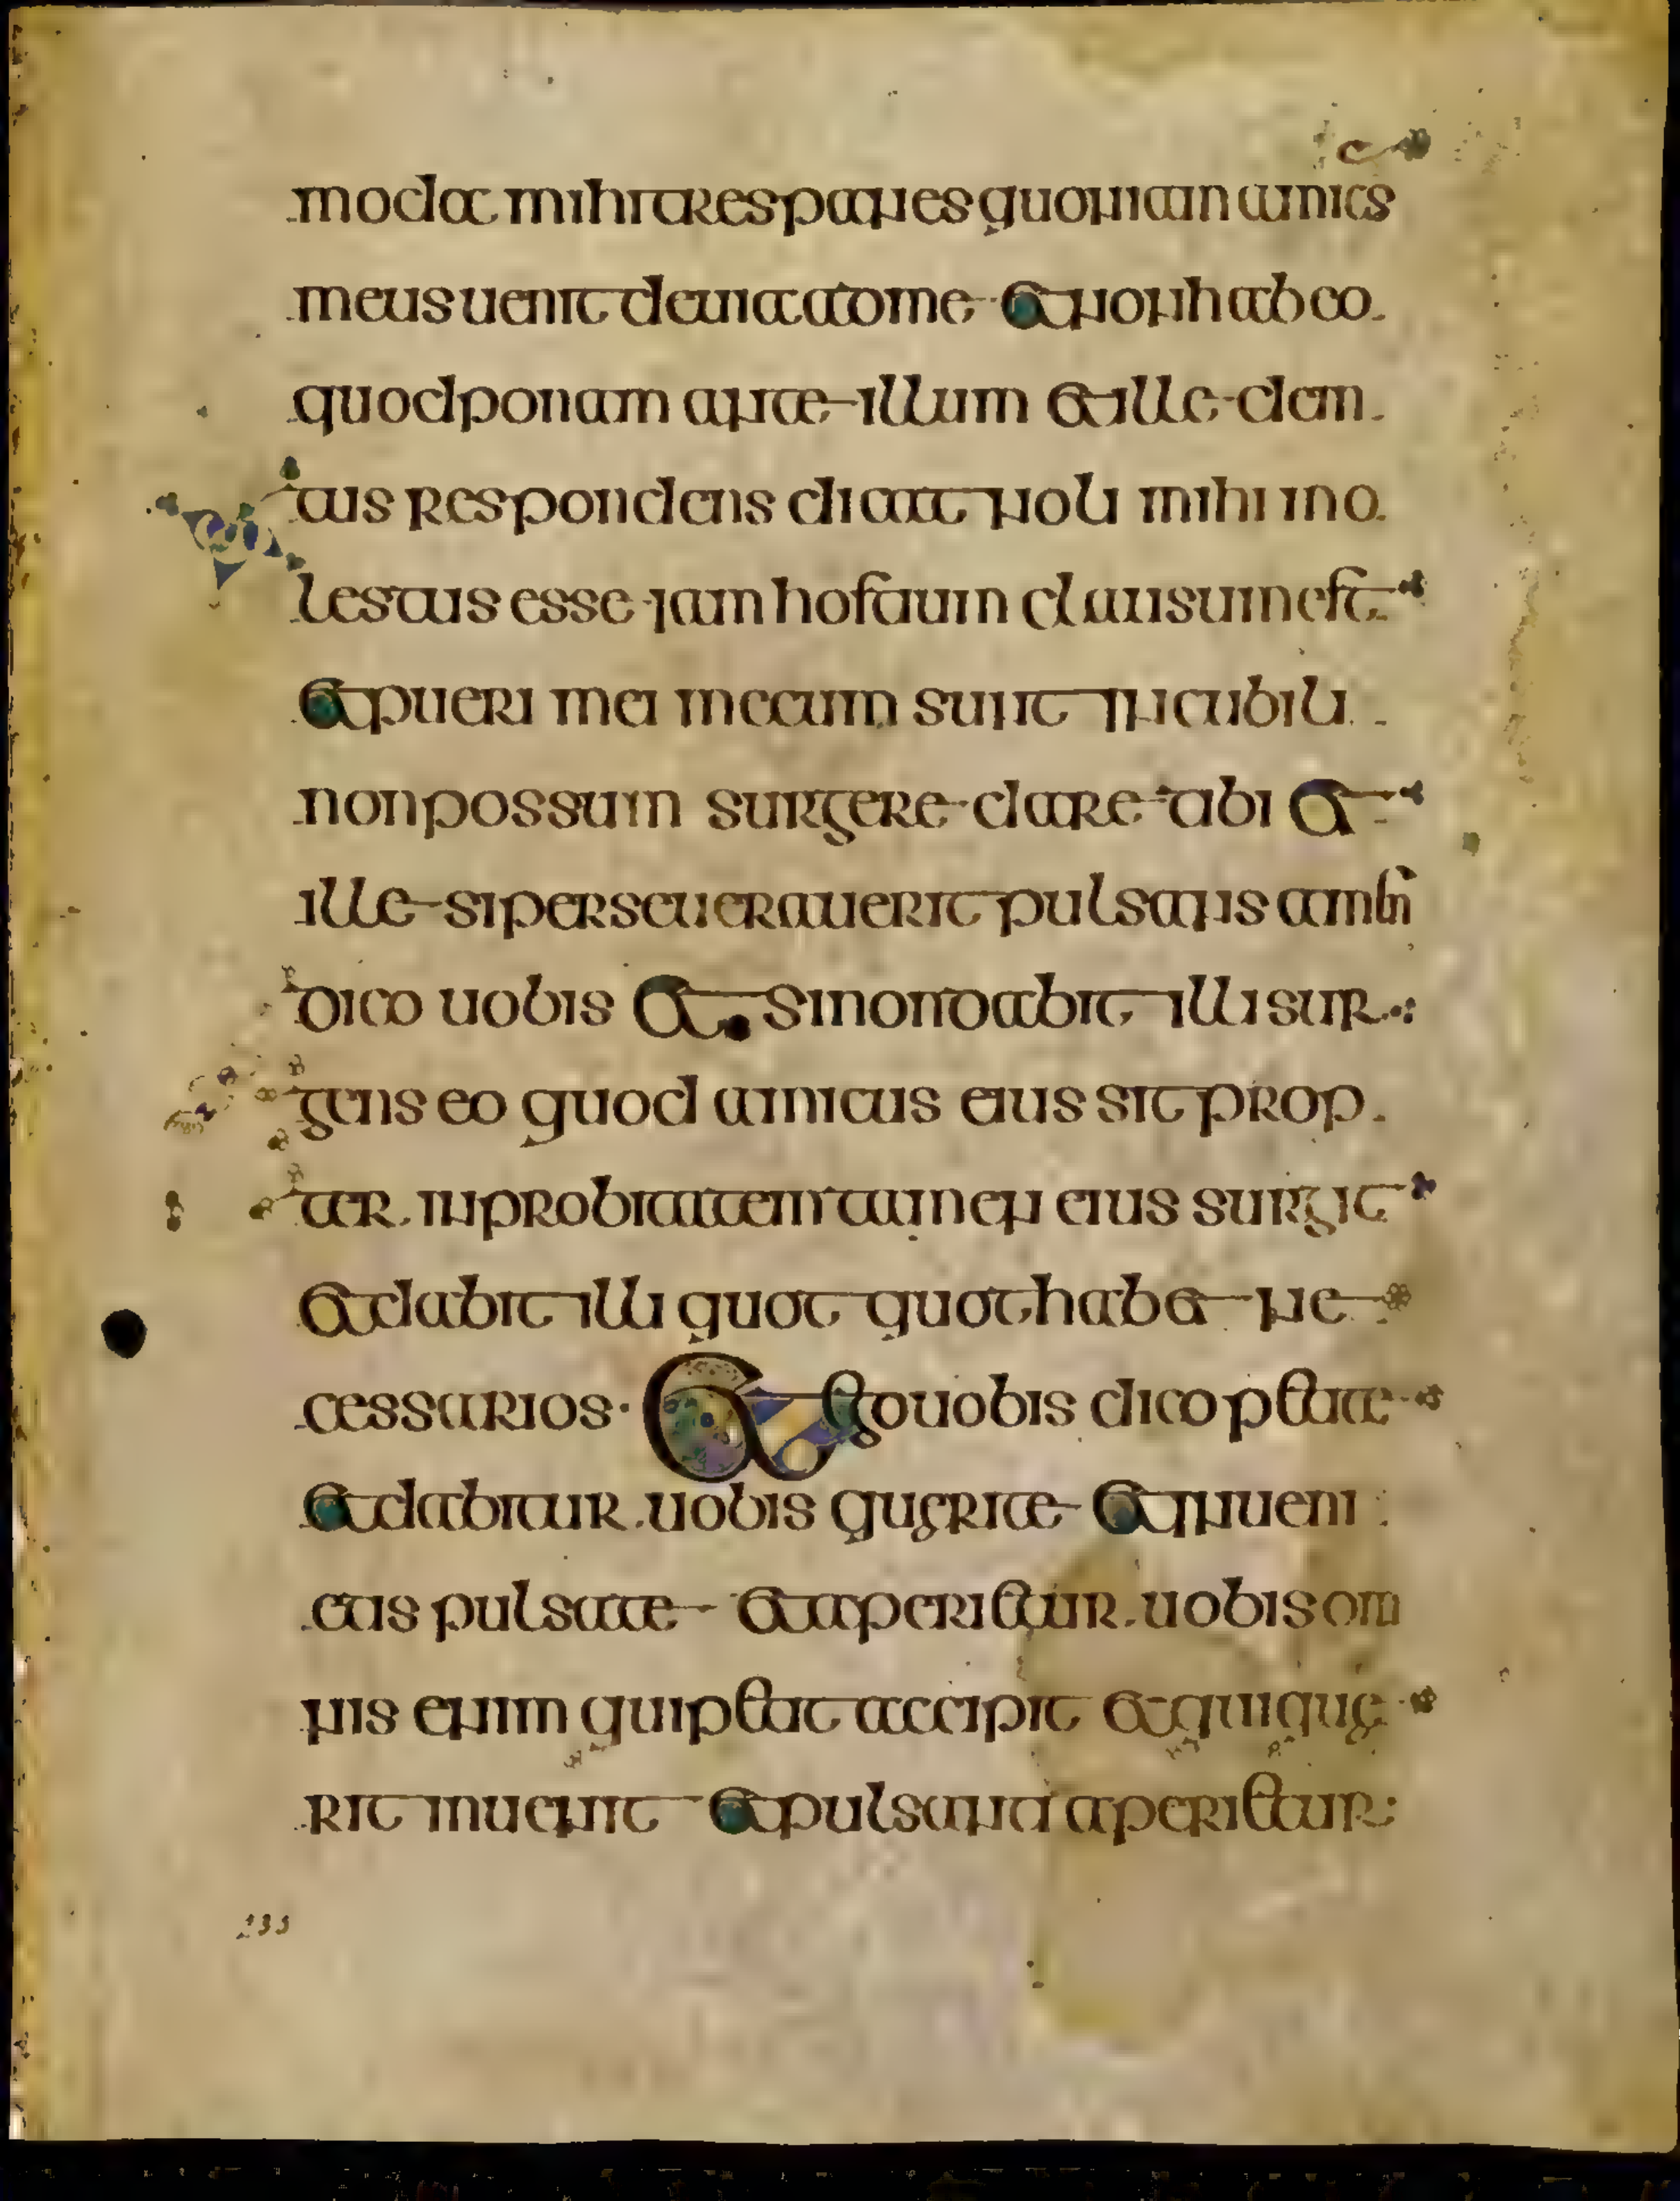 c
moda mihi tres panes quoniam amics
meus uenit de uia ad me et non habeo
quod ponam ante illum et ille dein
tus respondens dicat noli mihi mo
lestus esse iam hostium clausum est
et pueri mei mecum sunt in cubili
non possum surgere dare tibi et
ille si perseuerauerit pulsans amen
dico uobis et si non dabit illi sur
gens eo quod amicus eius sit prop
ter inprobitatem tamen eius surgit
et dabit illi quot quot habet ne
cessarios Et ego uobis dico petite
et dabitur uobis querite et inueni
etis pulsate et aperietur uobis om
nis enim qui petit accipit et qui que
rit inuenit et pulsanti aperietur
233